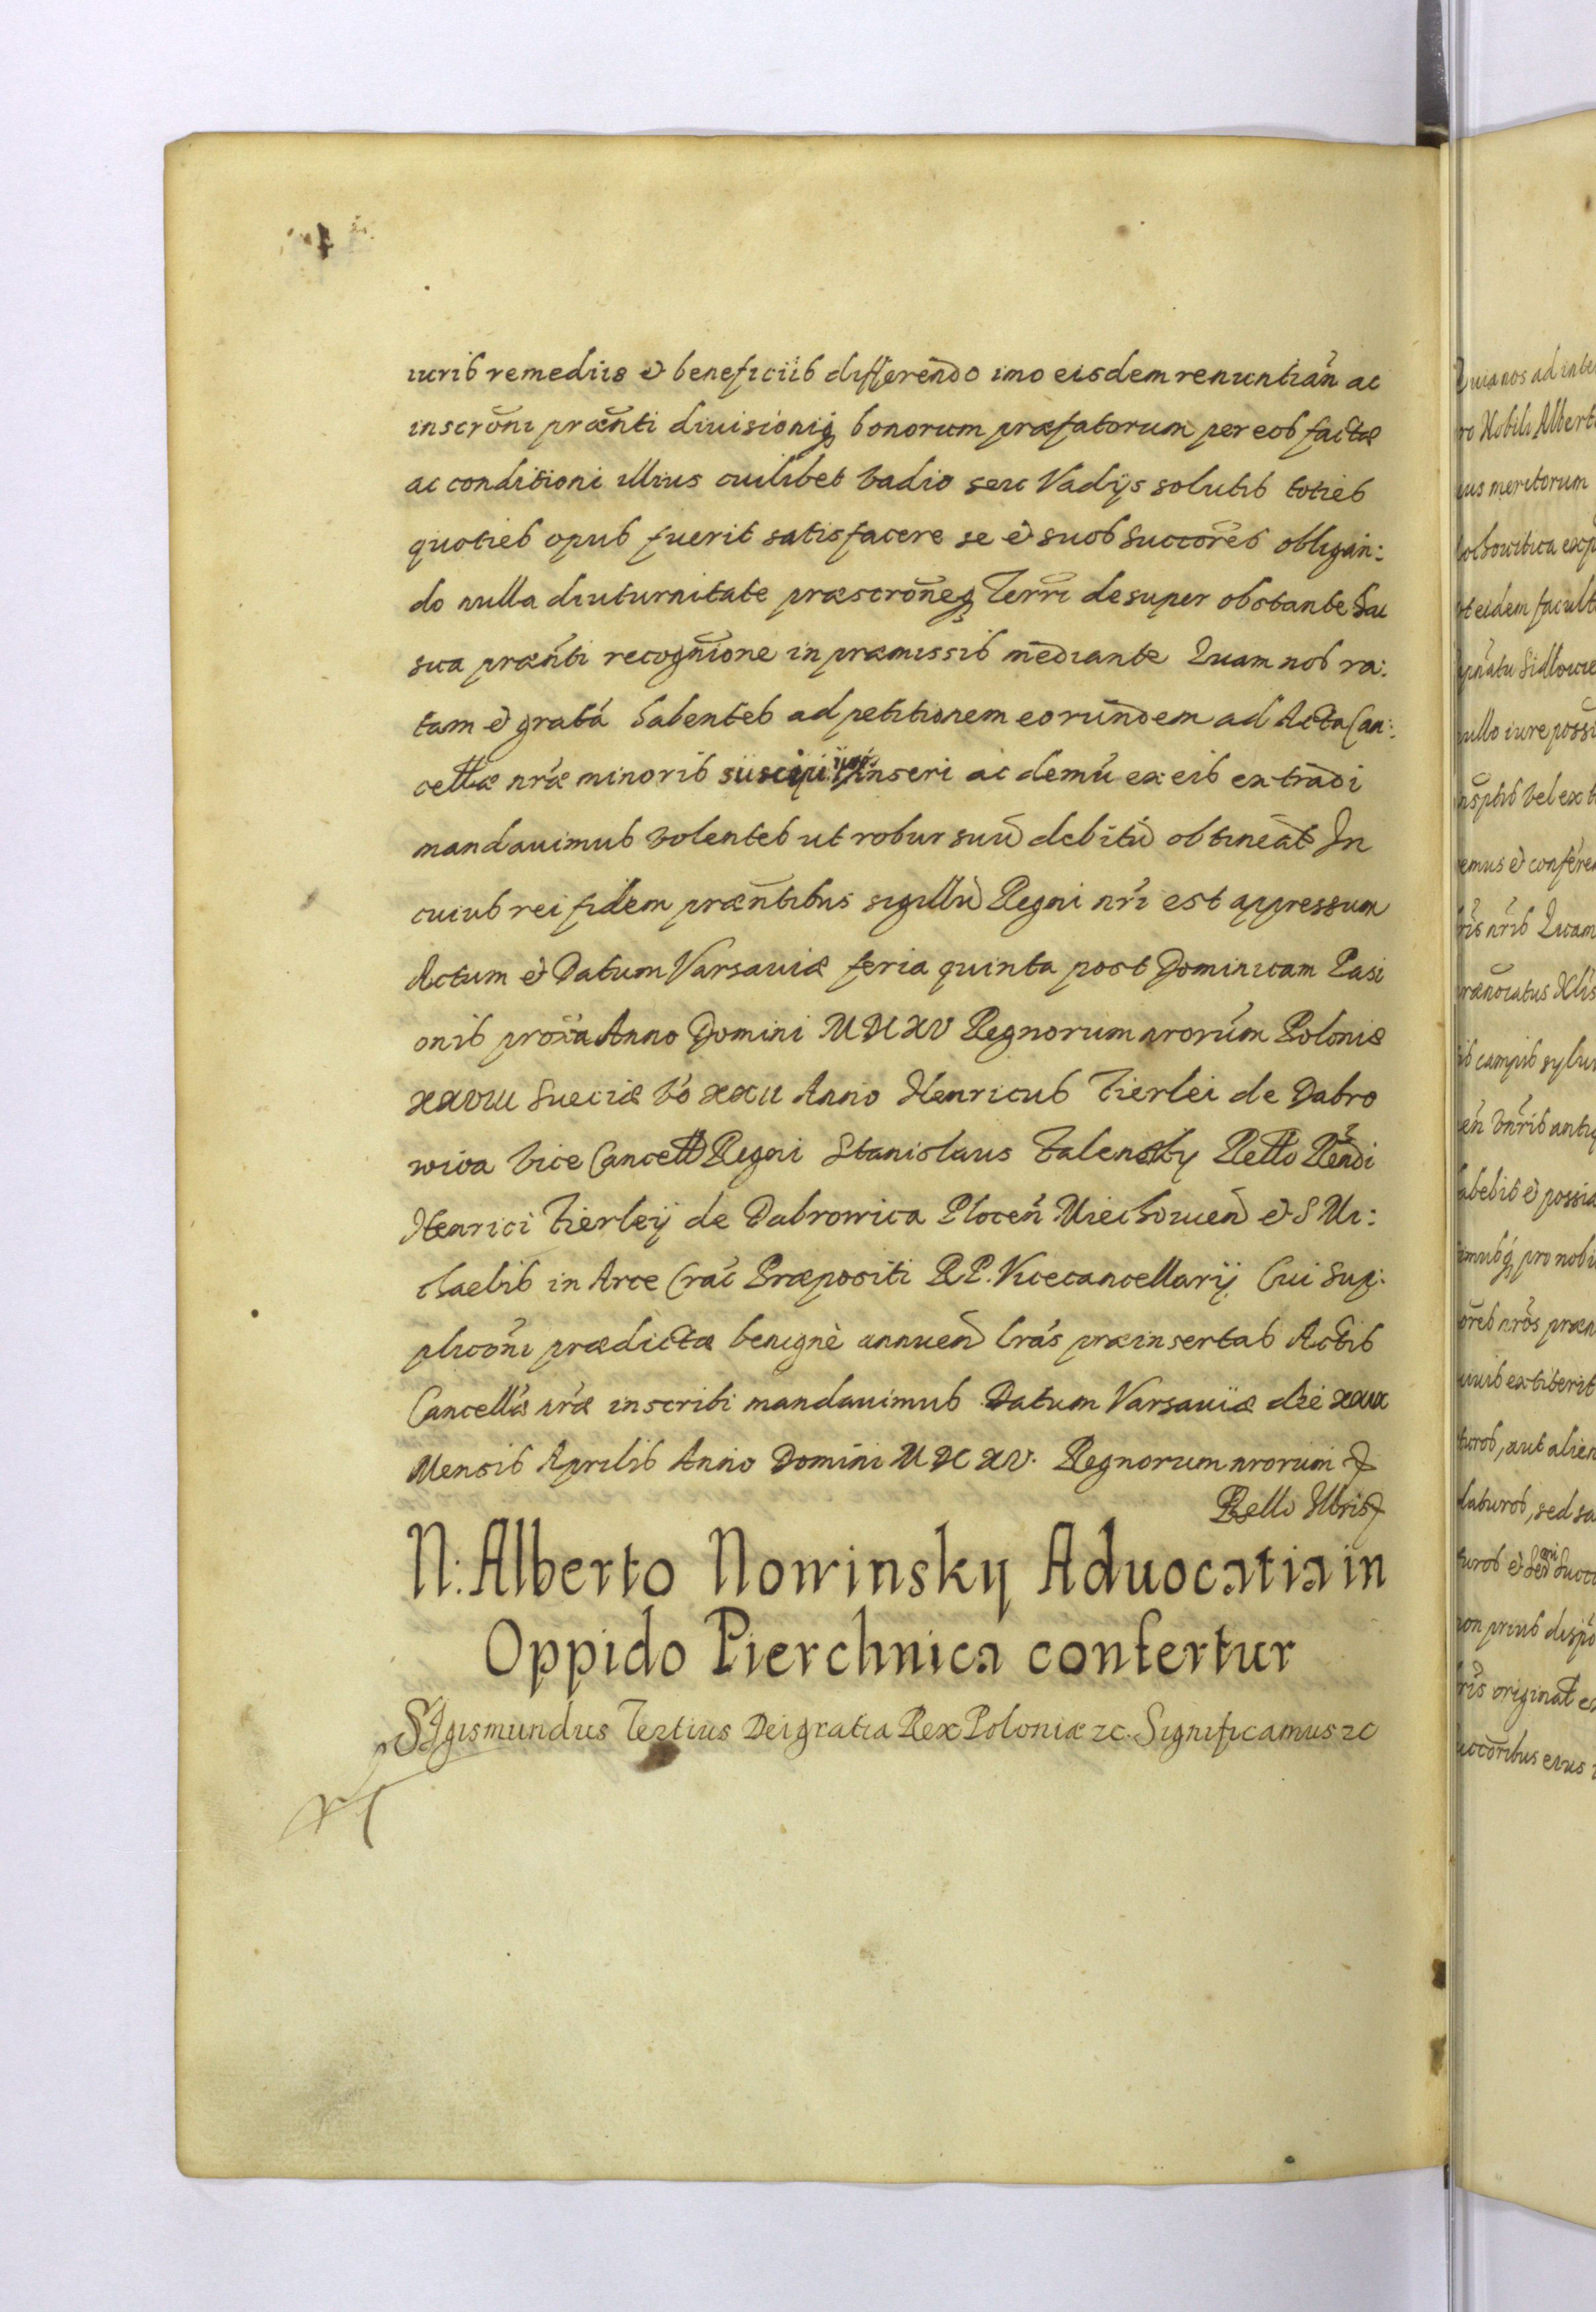 iuris remediis et beneficiis differendo imo eisdem renuntian ac
inscroni prænti diuisioniq bonorum præfatorum per eos factæ
ac conditioni illius cuilibet vadio seu Vadijs solutis toties
quoties opus fuerit satisfacere se et suos Succores obligan:
do nulla diuturnitate præscroneq Terrī desuper obstante hac
sua prænti recognione in præmissis mediante Quam nos ra:
tam et gratá habentes ad petitionem eorundem ad Acta Can:
cellæ nræ minoris suscipi inseri ac demú ex eis extradi
mandauimus volentes ut robur suū debitū obtineat In
cuius rei fidem præntibus sigillū Regni nri est appressum
Actum et Datum Varsauiæ feria quinta post Dominicam Pasi
onis proxa Anno Domini MDCXV Regnorum nrorum Poloniæ
xxviii Sueciæ vo xxii Anno Henricus Fierlei de Dabro
wiva Vice Cancell Regni Stanislaus Falensky Rello Rndi
Henrici Fierleij de Dabrowica Plocen Miechouien et S Mi:
chaelis in Arce Crac Præpositi R P. Vicecancellarij Cui Sup:
pliconi prædictæ benignè annuen lras præinsertas Actis
Cancellæ nræ inscribi mandauimus Datum Varsauiæ die xxix
Mensis Aprilis Anno Domini MDCXV. Regnorum nrorum
Rello
N: Alberto Nowinsky Aduocatia in
Oppido Pierchnica confertur
SIgismundus Tertius Dei gratia Rex Poloniæ &c. Significamus &c
Quia nos ad inte
ro Nobili Albert
ius meritorum
t eidem facult
nullo iure possi
nsptis vel ex
emus et confere
ris nris Quam
is campis sylu
abebit et possi
imusq pro nobi
ores nros præn
uiuis extiterit
turos, aut alien
daturos, sed sa
non prius dispo
ris original e
uccoribus eius